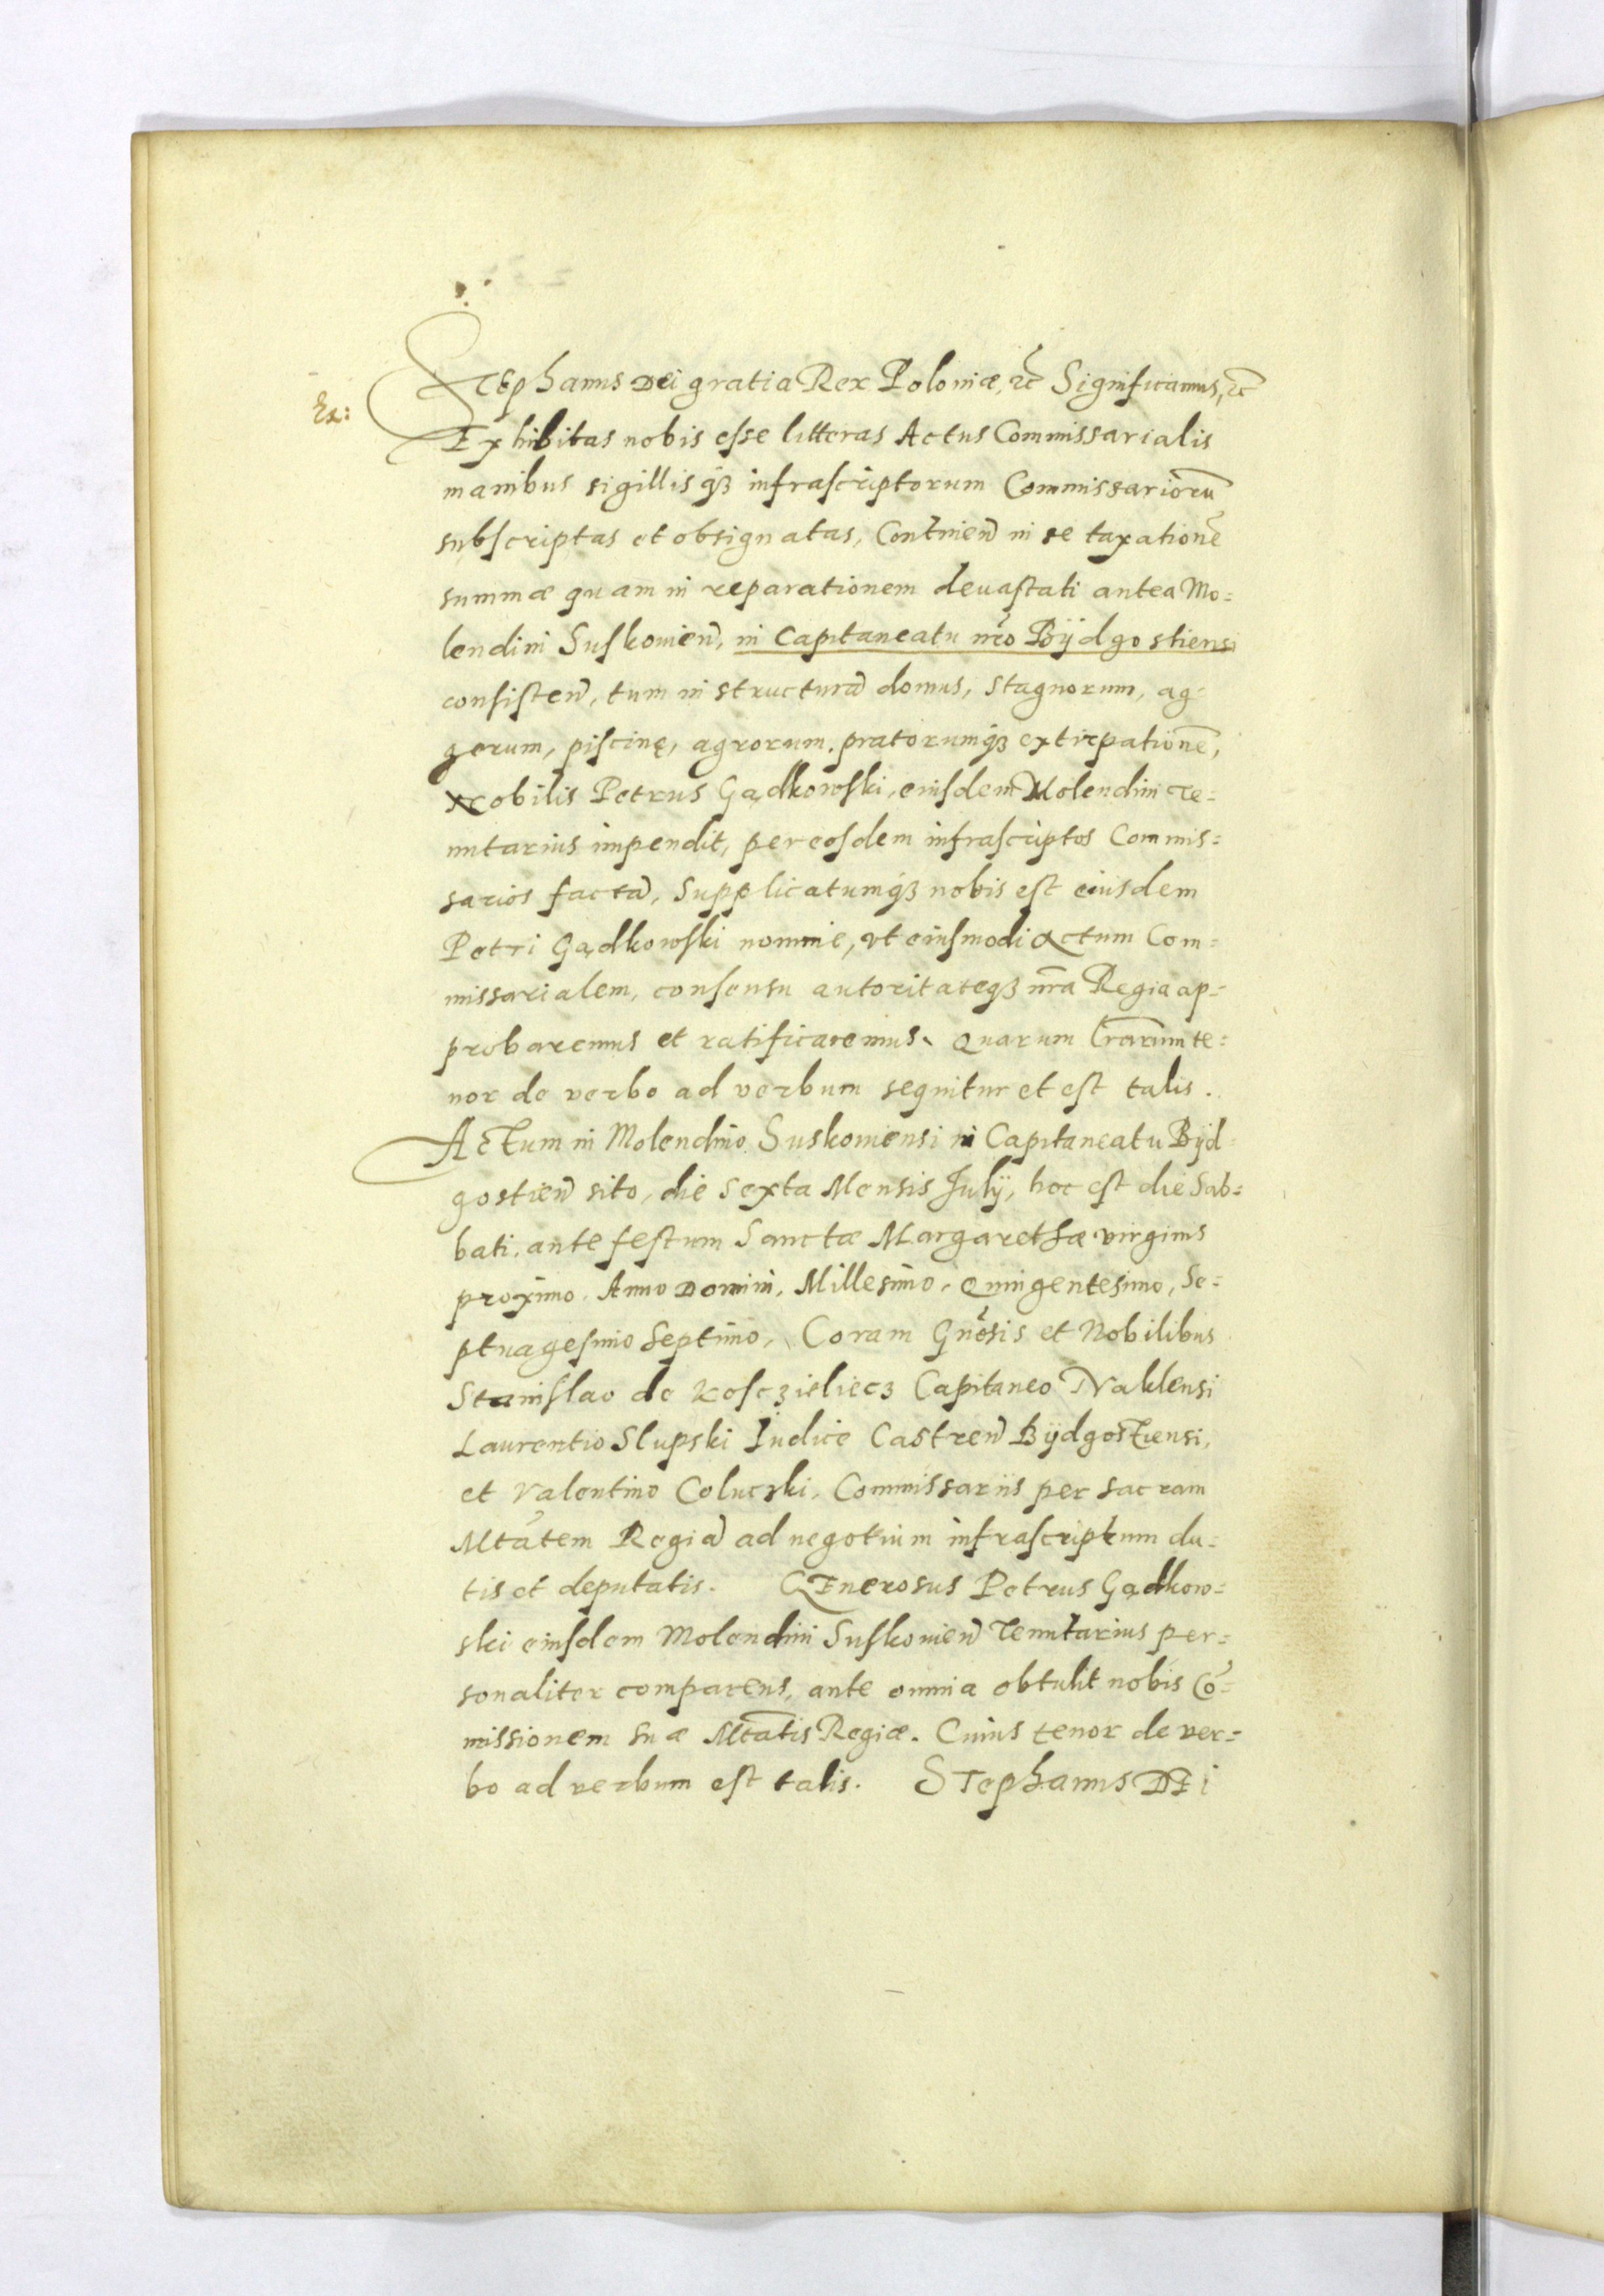 Stephanus Dei gratia Rex Poloniæ, &c̄ Significamus, &c̄
Ex:
Exhibitas nobis esse litteras Actus Commissarialis
manibus sigillisq́ꝫ infrascriptorum Commissariorū
subscriptas et obsignatas, Continen̄ in se taxationē
summæ quam in reparationem deuastati antea Mo=
lendini Suskouien̄, in Capitaneatu nr̄o Bÿdgostiensi
consisten̄, tum in structurā domus, stagnorum, ag=
gerum, piscinę, agrorum, pratorumq́ꝫ extirpationē,
Nobilis Petrus Gądkowski, eiusdem Molendini Te=
nutarius impendit, per eosdem infrascriptos Commis=
sarios factā, Supplicatumq́ꝫ nobis est eiusdem
Petri Gądkowski nomine, vt eiusmodi Actum Com=
missarialem, consensu autoritateqꝫ nr̄a Regia ap=
probaremus et ratificaremus. Quarum lr̄arum te=
nor de verbo ad verbum sequitur et est talis.
Actum in Molendino Suskouiensi in Capitaneatu Bÿd=
gostien̄ sito, die Sexta Mensis Julÿ, hoc est die Sab=
bati, ante festum Sanctæ Margarethæ virginis
proximo. Anno Domini, Millesimo, Quingentesimo, Se=
ptuagesimo Septimo, Coram Gn̄osis et Nobilibus
Stanislao de Kosczieliecz Capitaneo Naklensi
Laurentio Slupski Iudice Castren̄ Bÿdgostiensi,
et Valentino Coluczki, Commissariis per sacram
Mtātem Regiā ad negotium infrascriptum da=
tis et deputatis. GEnerosus Petrus Gądkow=
ski eiusdem Molendini Suskouien̄ Tenutarius per=
sonaliter comparens, ante omnia obtulit nobis Cō=
missionem suæ Mtātis Regiæ. Cuius tenor de ver=
bo ad verbum est talis. STephanus DEi